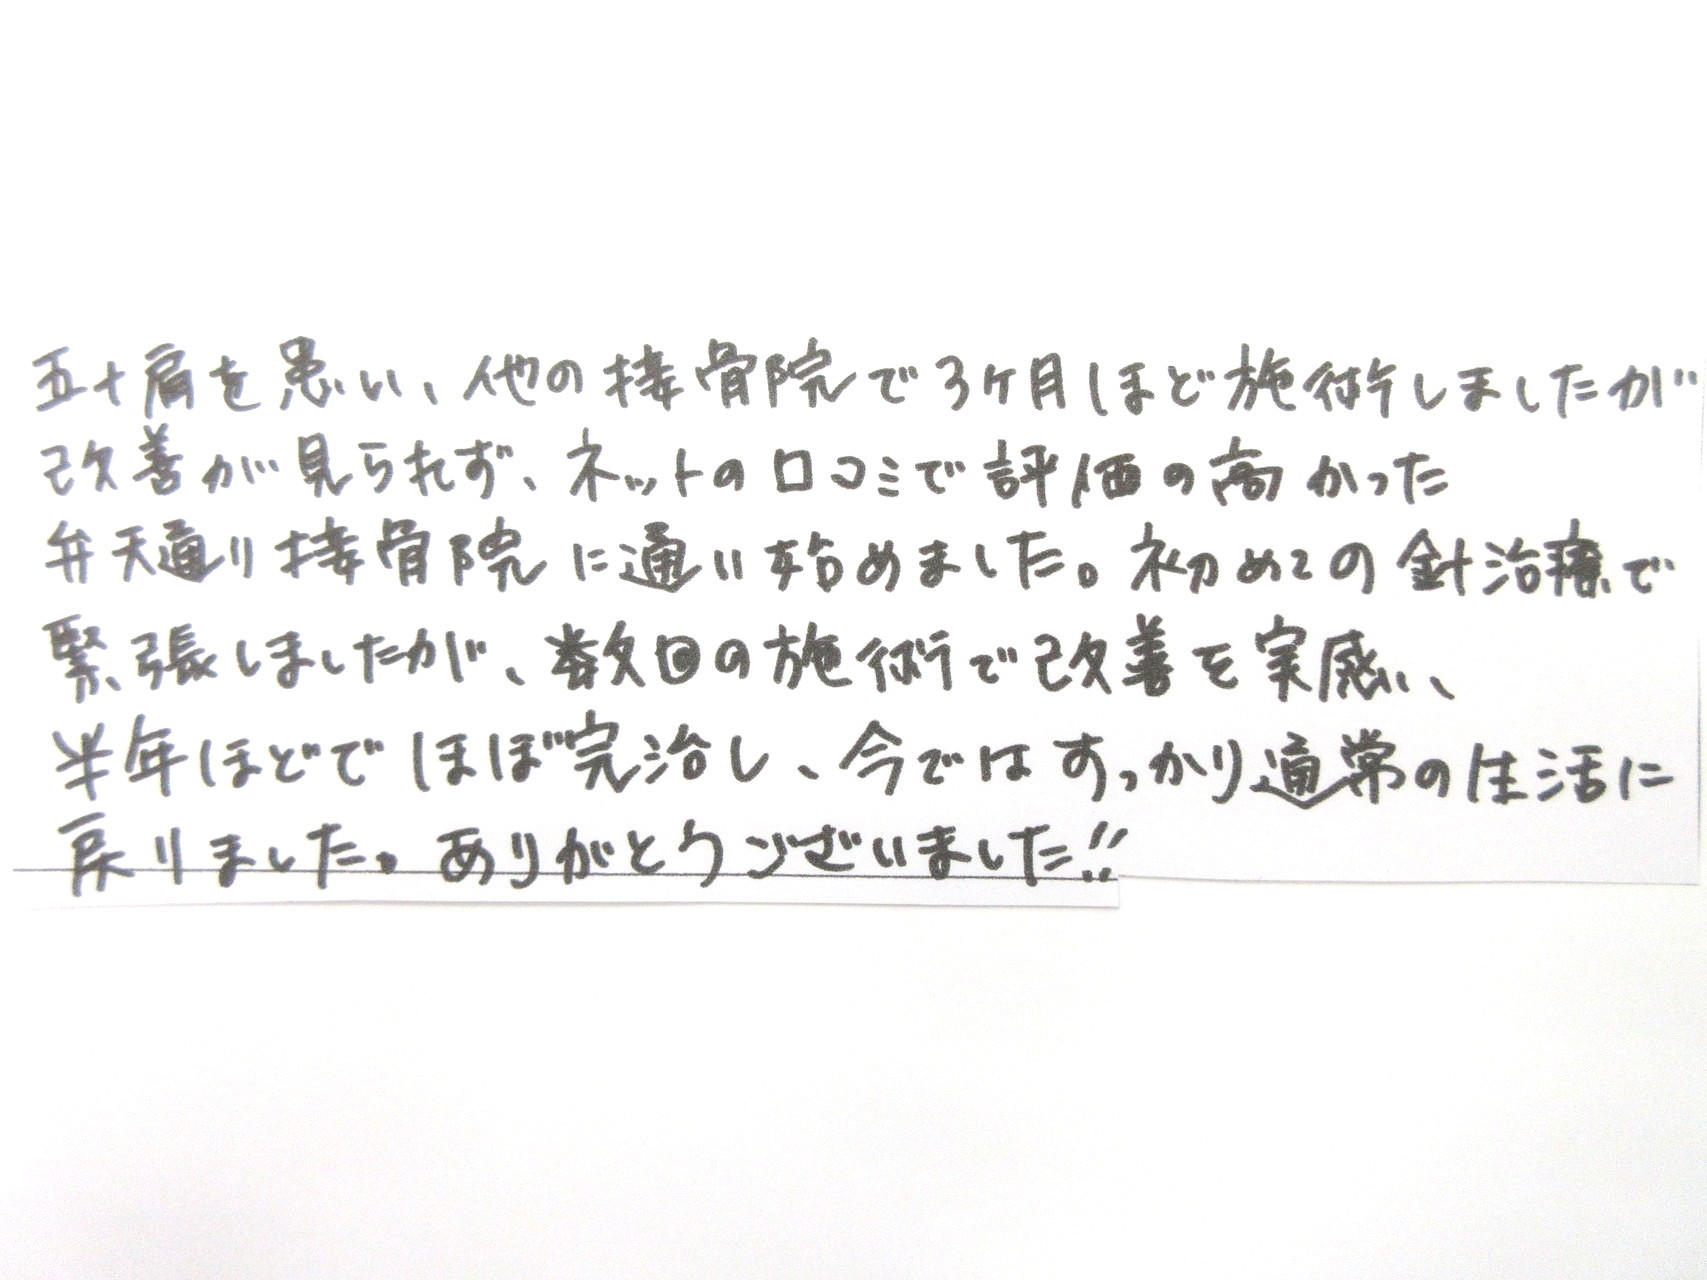 五十肩を患い、他の接骨院で3ヶ月ほど施術しましたが
改善が見られず、ネットの口コミで評価の高かった
弁天通り接骨院に通い始めました。初めての針治療で
緊張しましたが、数回の施術で改善を実感、
半年ほどでほぼ完治し、今ではすっかり通常の生活に
戻りました。ありがとうございました!!